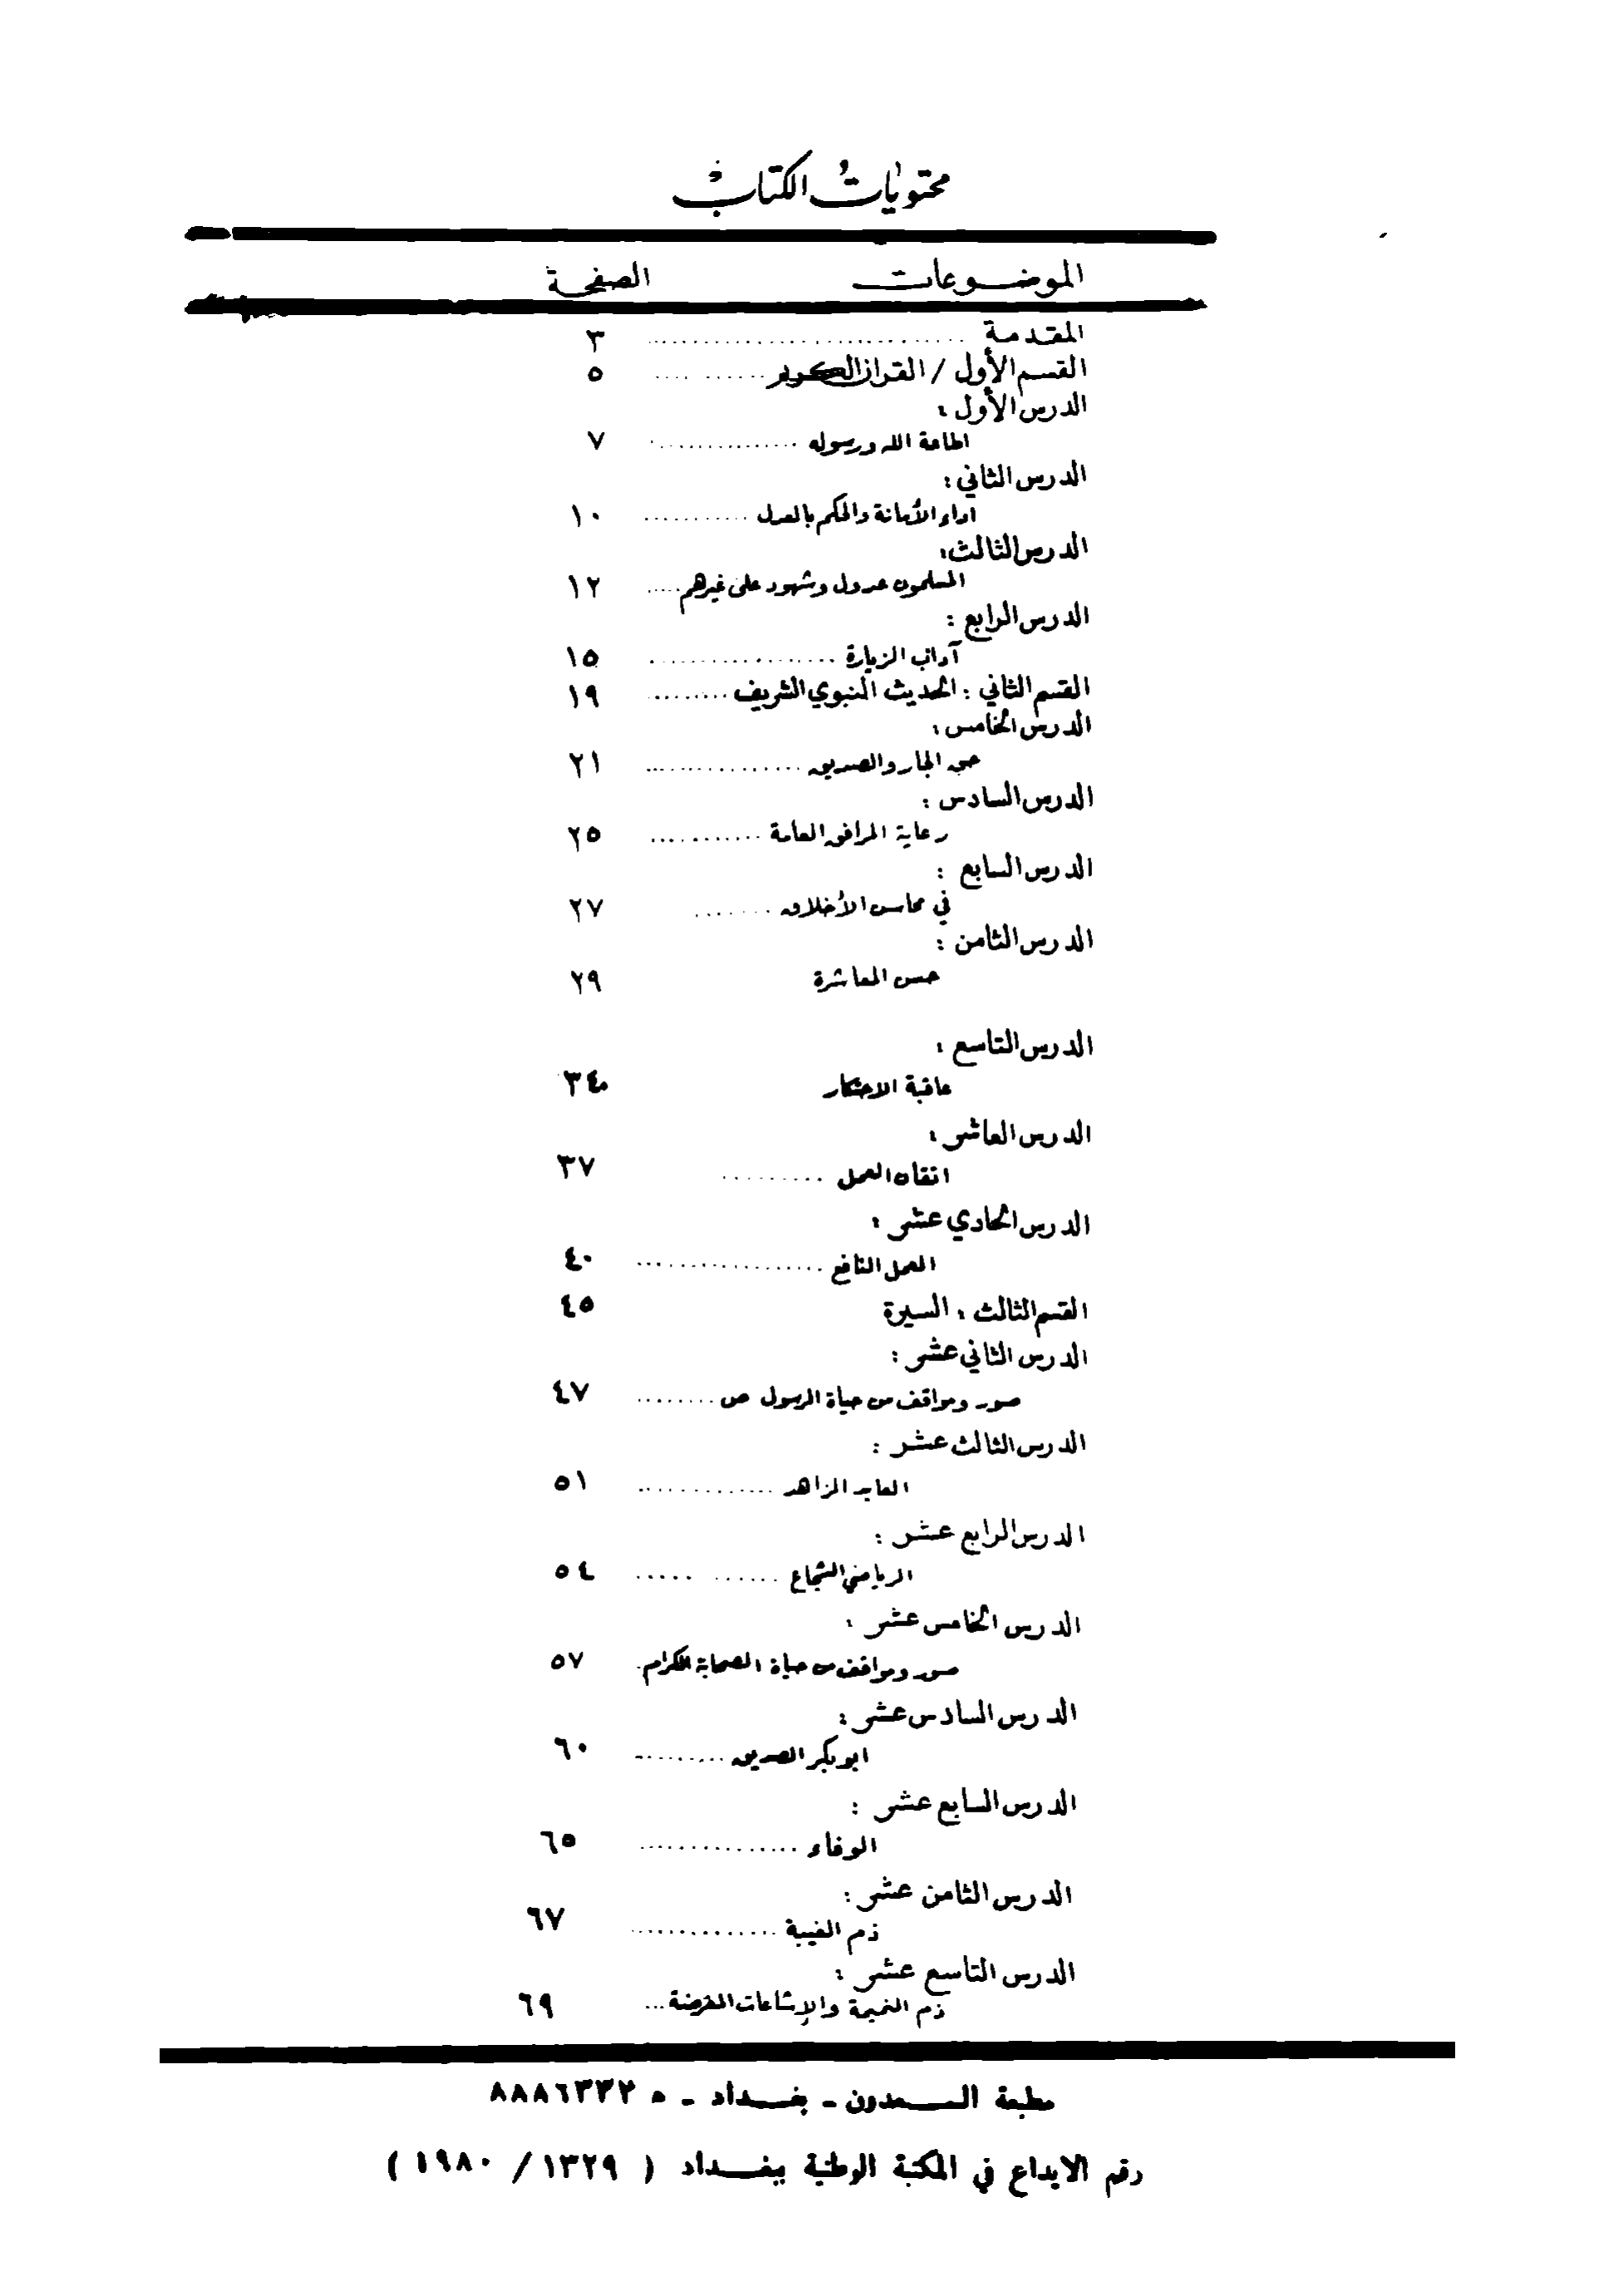 محتويات الكتاب
الموضوعات الصفحة
المقدمة ............ ٣
القسم الأول / القرآن الكريم ............ ٥
الدرس الأول :
اطاعة الله ورسوله ............ ٧
الدرس الثاني :
اداء الأمانة والحكم بالعدل ............ ١٠
الدرس الثالث :
المسلمون عدول وشهود على غيرهم ..... ١٢
الدرس الرابع :
آداب الزيارة ............ ١٥
القسم الثاني : الحديث النبوي الشريف ........ ١٩
الدرس الخامس :
حق الجار والصديق ............ ٢١
الدرس السادس :
رعاية المرافق العامة ............ ٢٥
الدرس السابع :
في محاسن الأخلاق ....... ٢٧
الدرس الثامن :
حسن المعاشرة ٢٩
الدرس التاسع :
عاقبة الاحتكار ٣٤
الدرس العاشر :
اتقان العمل ......... ٣٧
الدرس الحادي عشر :
العمل النافع ............ ٤٠
القسم الثالث : السيرة ٤٥
الدرس الثاني عشر :
صور ومواقف من حياة الرسول ص ........ ٤٧
الدرس الثالث عشر :
العابد الزاهد ............ ٥١
الدرس الرابع عشر :
الرياضي الشجاع ............ ٥٤
الدرس الخامس عشر :
صور ومواقف من حياة الصحابة الكرام ٥٧
الدرس السادس عشر :
ابو بكر الصديق ......... ٦٠
الدرس السابع عشر :
الوفاء ............ ٦٥
الدرس الثامن عشر :
ذم الغيبة ............ ٦٧
الدرس التاسع عشر :
ذم النميمة والإشاعات المغرضة ... ٦٩
مطبعة السعدون - بغداد - ه ٨٨٨٦٣٣٢
رقم الايداع في المكتبة الوطنية ببغداد ( ١٣٢٩ / ١٩٨٠ )